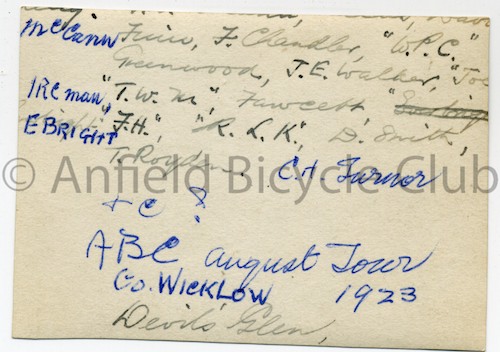 McCann Finn, F. Chandler, "W.P.C."
Greenwood, J.E. Walker, "Joe
Ireman, "T.W.M", Fawcett,
EBRIGHT "F.H.", "R.L.K", D. Smith,
T. Royden, C.H. Turnor
© Anfield Bicycle Club
+ c ?
ABC august Tour
Co. WICKLOW 1923
Devil's Glen,